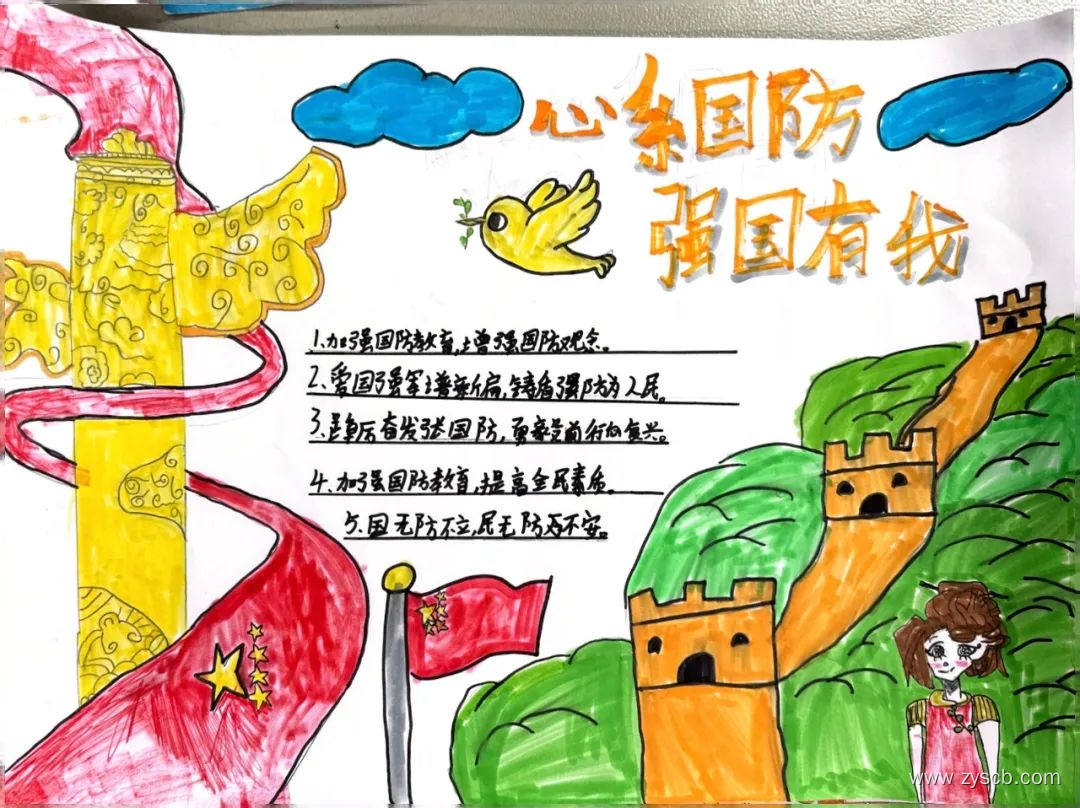 心系国防
强国有我
1.加强国防教育,增强国防观念。
2.爱国强军谱新篇,铸盾强防为人民。
3.踔厉奋发强国防,勇毅前行向复兴。
4.加强国防教育,提高全民素质。
5.国无防不立,民无防而不安。
www.zyscb.com